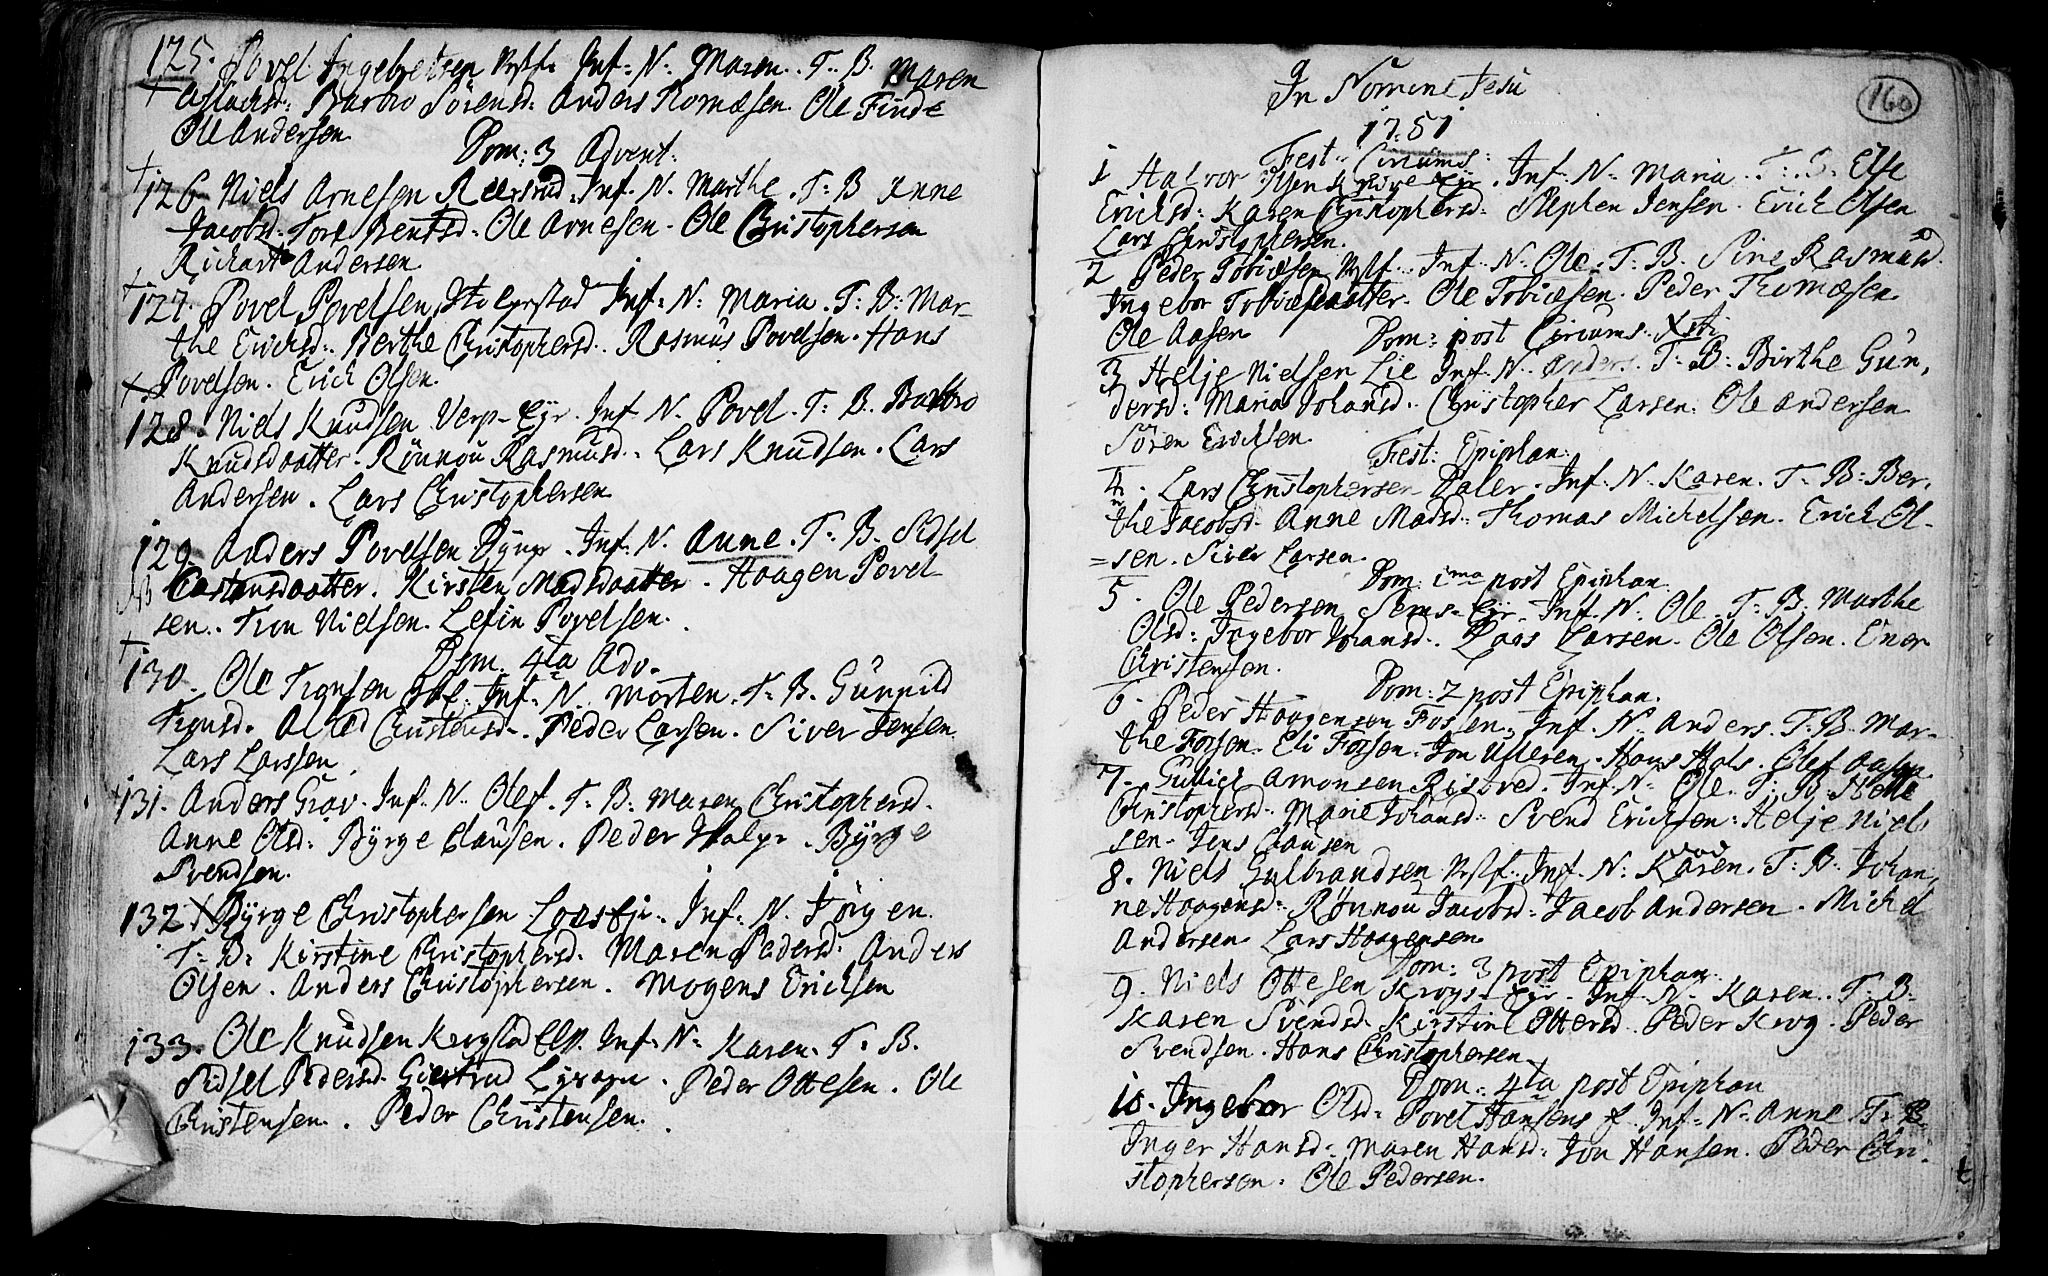 125. Povel Ingebretsen Inf: N. Maren. T. B. Maren
Aslachsd: Barbro Sörensd: Anders Thomæsen. Ole Finde
Ole Andersen
Dom: 3 Advent:
126. Niels Arnesen Inf. N. Marthe. T: B Anne
Jacobsd. Tore Bentsd. Ole Arnesen. Ole Christophersen
Richart Andersen
127. Povel Povelsen Inf: N: Maria. T: B: Mar-
the Erichsd. Berthe Christophersd. Rasmus Povelsen. Hans
Povelsen. Erich Olsen.
128. Niels Knudsen Verp-Eÿr. Inf. N. Povel. T: B. Barbro
Knudsdaatter. Rönnou Rasmusd. Lars Knudsen. Lars
Andersen. Lars Christophersen
129. Anders Povelsen Inf. N. Anne. T: B. Sidsel
Carstensdaatter. Kirsten Madsdaatter. Haagen Povel
sen. Tron Nielsen. Lefin Povelsen.
Dom. 4ta Adv.
130. Ole Tronsen Inf. N. Morten. T: B. Gunnild
Tronsd. Christensd. Peder Larsen. Siver Jensen.
Lars Larssen.
131. Anders Grav. Inf. N. Olef. T: B: Maren Christophersd.
Anne Olsd: Bÿrge Clausen. Peder Bÿrge
Svendsen.
132 Bÿrge Christophersen Inf: N. Jörgen.
T: B: Kirstine Christophersd. Maren Pedersd. Anders
Olsen. Anders Christophersen. Mogens Erichsen
133. Ole Knudsen Inf: N: Karen. T: B.
Sidsel Pedersd. Giertrud Peder Ottesen. Ole
Christensen. Peder Christensen.
160
In Nomine Jesu
1751
Fest: Circums:
1 Halvor Inf: N: Maria. T: B. Else
Erichsd: Karen Christophersd: Stephen Jensen. Erich Olsen
Lars Christophersen.
2 Peder Tobiæsen Inf. N. Ole. T: B. Sine Rasmusd.
Ingebor Tobiæsdaatter. Ole Tobiæsen. Peder Thomæsen.
Ole Aasen
Dom: post Circums. Xsti
3 Helje Nielsen Lie Inf. N. Anders. T: B: Birthe Gun,
dersd: Maria Johansd. Christopher Larsen. Ole Andersen
Sören Erichsen.
Fest: Epiphan:
4. Lars Christophersen Daler. Inf. N. Karen. T: B: Ber,
the Jacobsd. Anne Madsd: Thomas Michelsen. Erich Ol-
=sen. Siver Larsen.
Dom: 1ma post Epiphan.
5. Ole Pedersen Sems-Eÿr. Inf. N. Ole. T: B. Marthe
Olsd: Ingebor Johansd. Lars Larsen. Ole Olsen. Ener
Christensen.
Dom: 2 post Epiphan.
6. Peder Haagensen Fossen. Inf. N. Anders. T: B. Mar-
the Fossen. Eli Fossen. Jon Ulleren. Hans Hals. Olef Aasen
7. Gullich Amonsen Inf. N: Ole. T: B.
Christophersd. Marie Johansd. Svend Erichsen: Helje Niel
sen. Jens Clausen
8. Niels Gulbrandsen Inf. N. Karen. T: B. Johan,
ne Haagensd. Rönnou Jacobsd: Jacob Andersen. Michel
Andersen Lars Haagensen.
Dom: 3 post Epiphan.
9. Niels Ottesen Krogs-Eÿr. Inf. N. Karen. T: B:
Karen Svendsd. Kirstine Ottersd. Peder Krog. Peder
Svendsen. Hans Christophersen.
Dom: 4ta post Epiphan
10. Ingebor Olsd: Povel Hansens Inf. N. Anne T: B.
Inger Hansd: Maren Hansd: Jon Hansen. Peder Chri-
stophersen. Ole Pedersen.